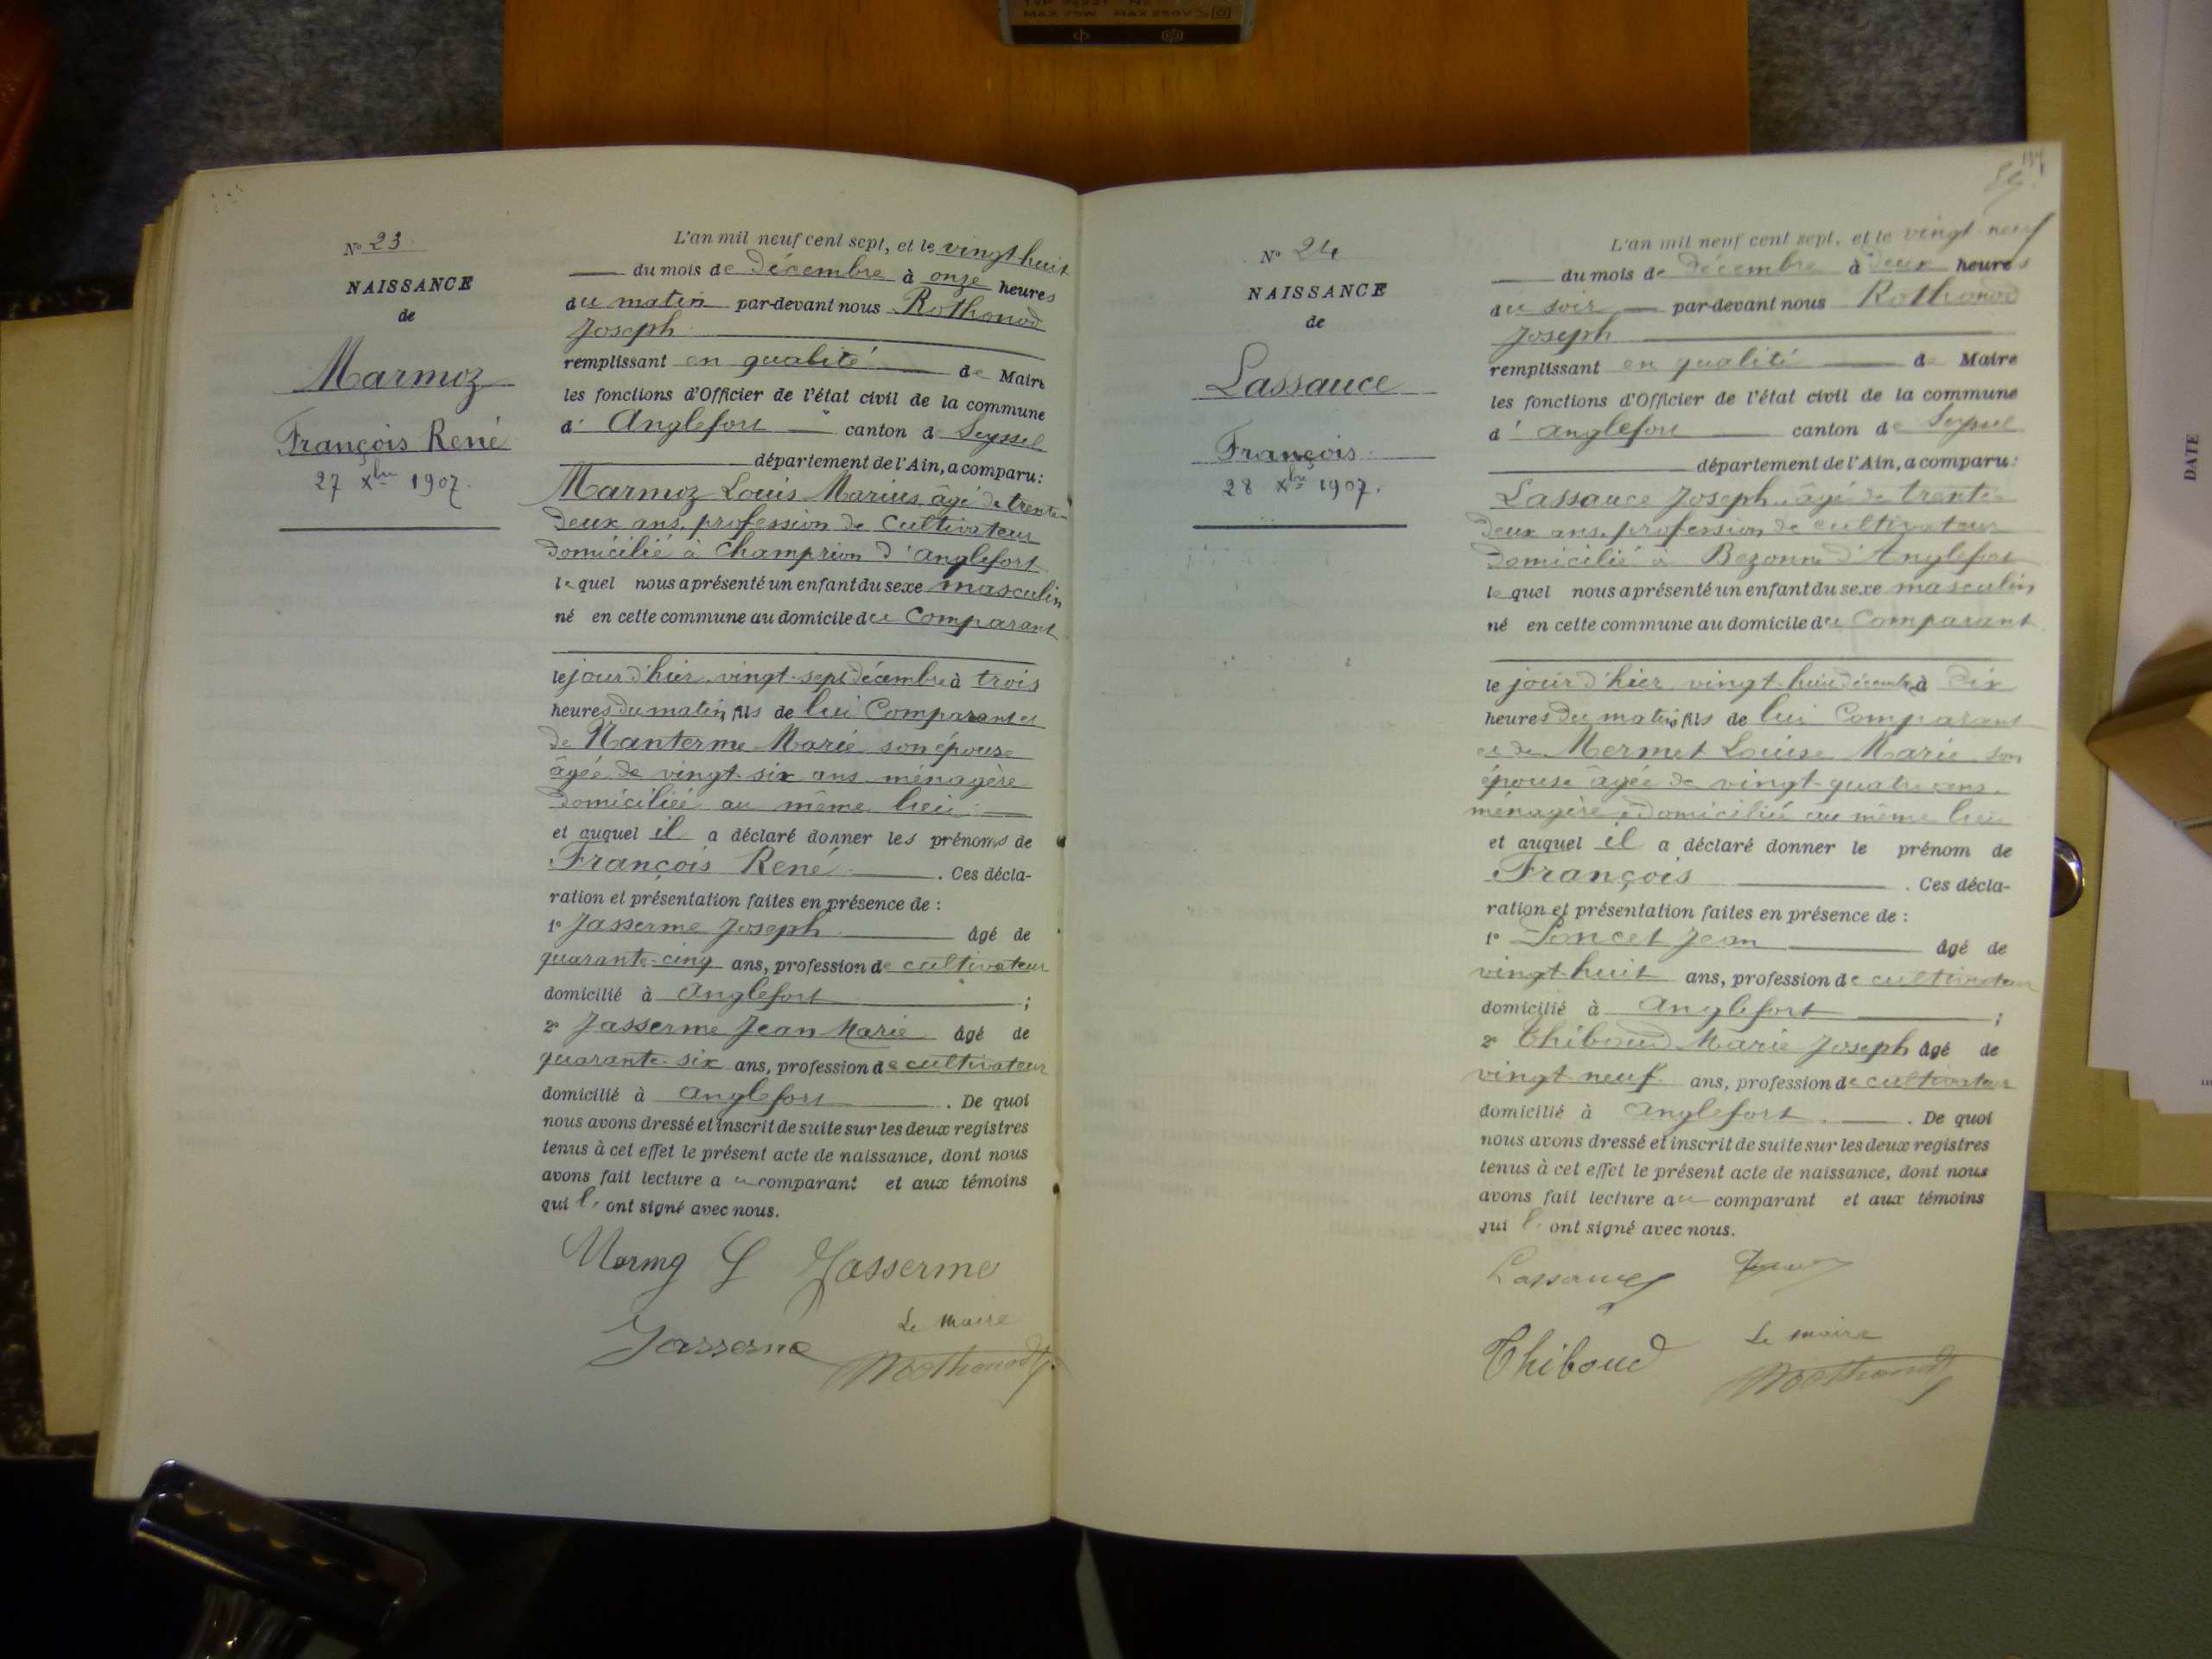 MAX 75W MAX 250V
N° 23
NAISSANCE
de
Marmoz
François René
27 Xbre 1907.
L'an mil neuf cent sept, et le vingt huit
du mois de décembre à onze heures
du matin par-devant nous Rothonod
Joseph
remplissant en qualité de Maire
les fonctions d'Officier de l'état civil de la commune
d' Anglefort canton de Seyssel
département de l'Ain, a comparu :
Marmoz Louis Marius, âgé de trente-
deux ans, profession de cultivateur
domicilié à Champrion d'Anglefort
lequel nous a présenté un enfant du sexe masculin
né en cette commune au domicile du Comparant
le jour d'hier, vingt-sept décembre à trois
heures du matin, fils de lui Comparant et
de Nanterme Marie son épouse
âgée de vingt-six ans ménagère
domiciliée au même lieu
et auquel il a déclaré donner les prénoms de
François René . Ces décla-
ration et présentation faites en présence de :
1° Jasserme Joseph âgé de
quarante-cinq ans, profession de cultivateur
domicilié à Anglefort ;
2° Jasserme Jean Marie âgé de
quarante-six ans, profession de cultivateur
domicilié à Anglefort . De quoi
nous avons dressé et inscrit de suite sur les deux registres
tenus à cet effet le présent acte de naissance, dont nous
avons fait lecture au comparant et aux témoins
qui l'ont signé avec nous.
Jasserme
Le maire
Jasserme Rothonod
N° 24
NAISSANCE
de
Lassauce
François
28 Xbre 1907.
L'an mil neuf cent sept, et le vingt neuf
du mois de décembre à deux heures
du soir par-devant nous Rothonod
Joseph
remplissant en qualité de Maire
les fonctions d'Officier de l'état civil de la commune
d' Anglefort canton de Seyssel
département de l'Ain, a comparu :
Lassauce Joseph, âgé de trente-
deux ans, profession de cultivateur
domicilié à Bezonne d'Anglefort
lequel nous a présenté un enfant du sexe masculin
né en cette commune au domicile du Comparant
le jour d'hier vingt-huit décembre à dix
heures du matin, fils de lui Comparant
et de Mermet Louise Marie son
épouse âgée de vingt-quatre ans,
ménagère, domiciliée au même lieu
et auquel il a déclaré donner le prénom de
François . Ces décla-
ration et présentation faites en présence de :
1° Poncet Jean âgé de
vingt-huit ans, profession de cultivateur
domicilié à Anglefort ;
2° Thiboud Marie Joseph âgé de
vingt-neuf ans, profession de cultivateur
domicilié à Anglefort . De quoi
nous avons dressé et inscrit de suite sur les deux registres
tenus à cet effet le présent acte de naissance, dont nous
avons fait lecture au comparant et aux témoins
qui l'ont signé avec nous.
Lassauce
Le maire
Thiboud Rothonod
DATE